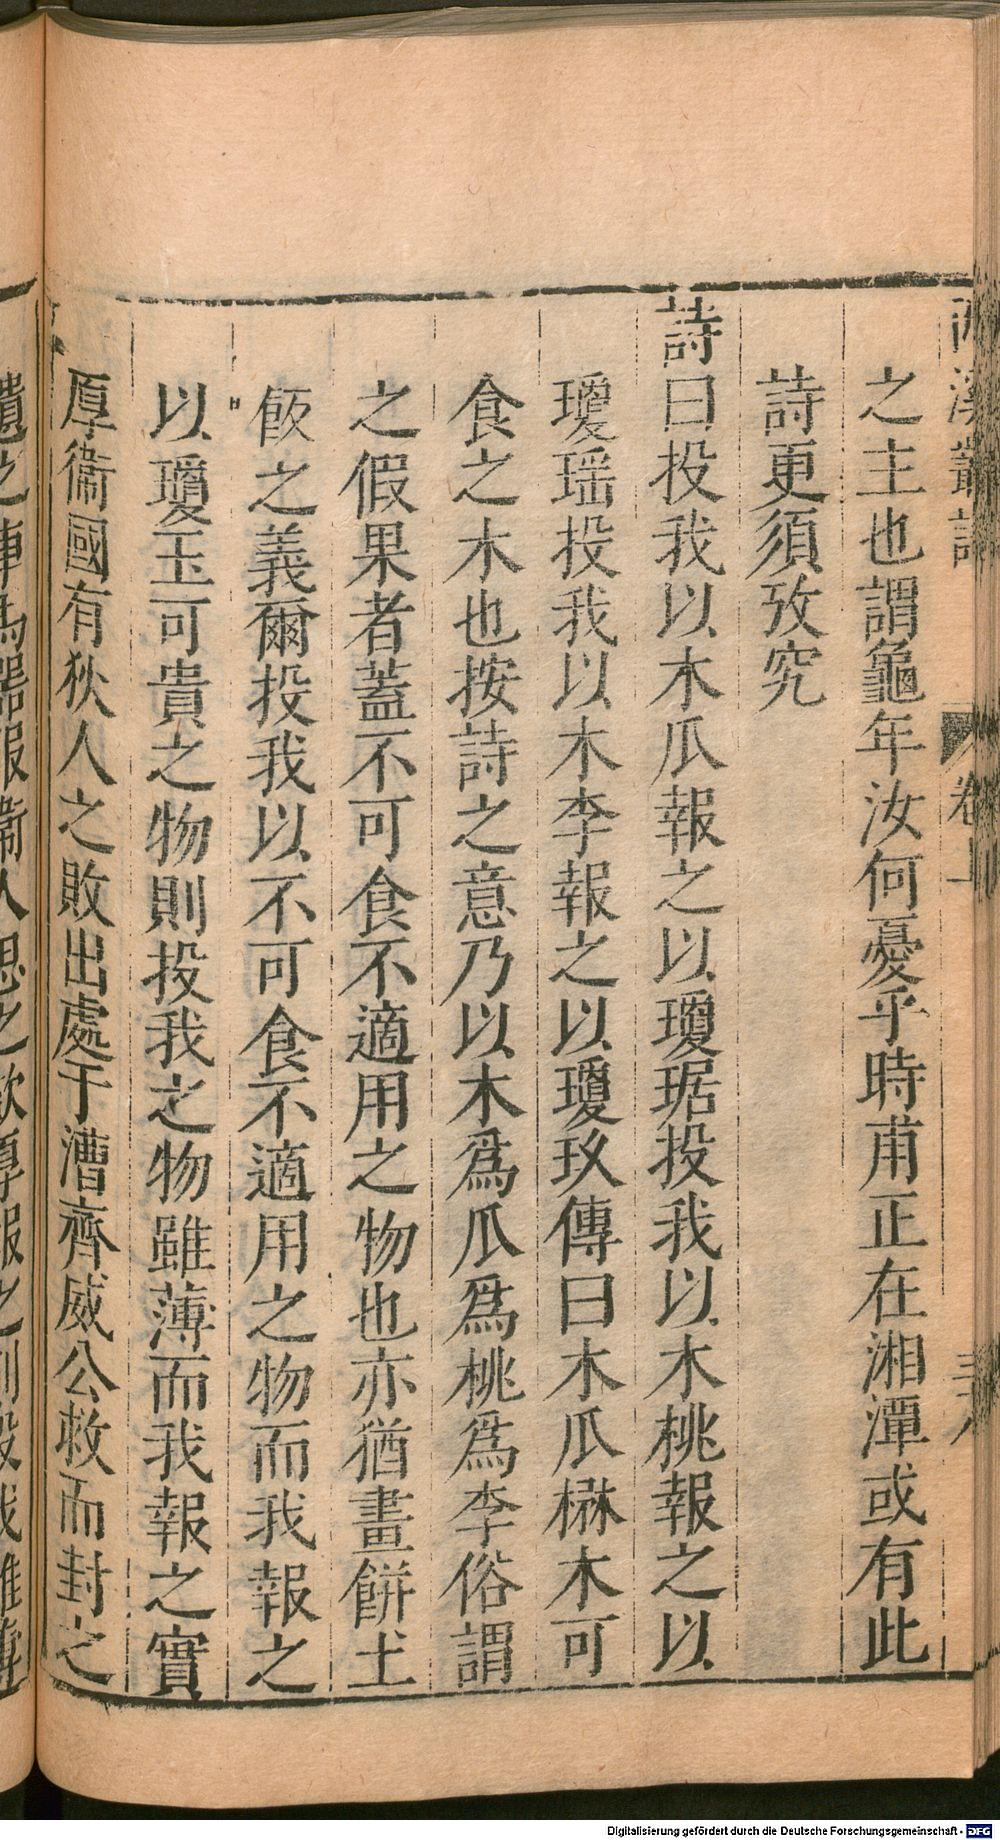 西溪叢語 卷上
之主也謂龜年汝何憂乎時甫正在湘潭或有此
詩更須攷究
詩曰投我以木瓜報之以瓊琚投我以木桃報之以
瓊瑶投我以木李報之以瓊玖傳曰木瓜楙木可
食之木也按詩之意乃以木爲瓜爲桃爲李俗謂
之假果者蓋不可食不適用之物也亦猶畫餅土
飯之義爾投我以不可食不適用之物而我報之
以瓊玉可貴之物則投我之物雖薄而我報之實
厚衞國有狄人之敗出處于漕齊威公救而封之
遺之車馬器服衞人思之欲厚報之則投我雖薄
Digitalisierung gefördert durch die Deutsche Forschungsgemeinschaft - DFG